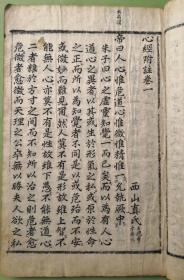 心經附註卷一
西山真氏
帝曰人心惟危道心惟微惟精惟一允執厥中
朱子曰心之虛靈知覺一而已矣而以爲有人心
道心之異者以其或生於形氣之私或原於性命
之正而所以爲知覺者不同是以或危殆而不安
或微妙而難見爾然人莫不有是形故雖上智不
能無人心亦莫不有是性故雖下愚不能無道心
二者雜於方寸之間而不知所以治之則危者愈
危微者愈微而天理之公卒無以勝夫人欲之私